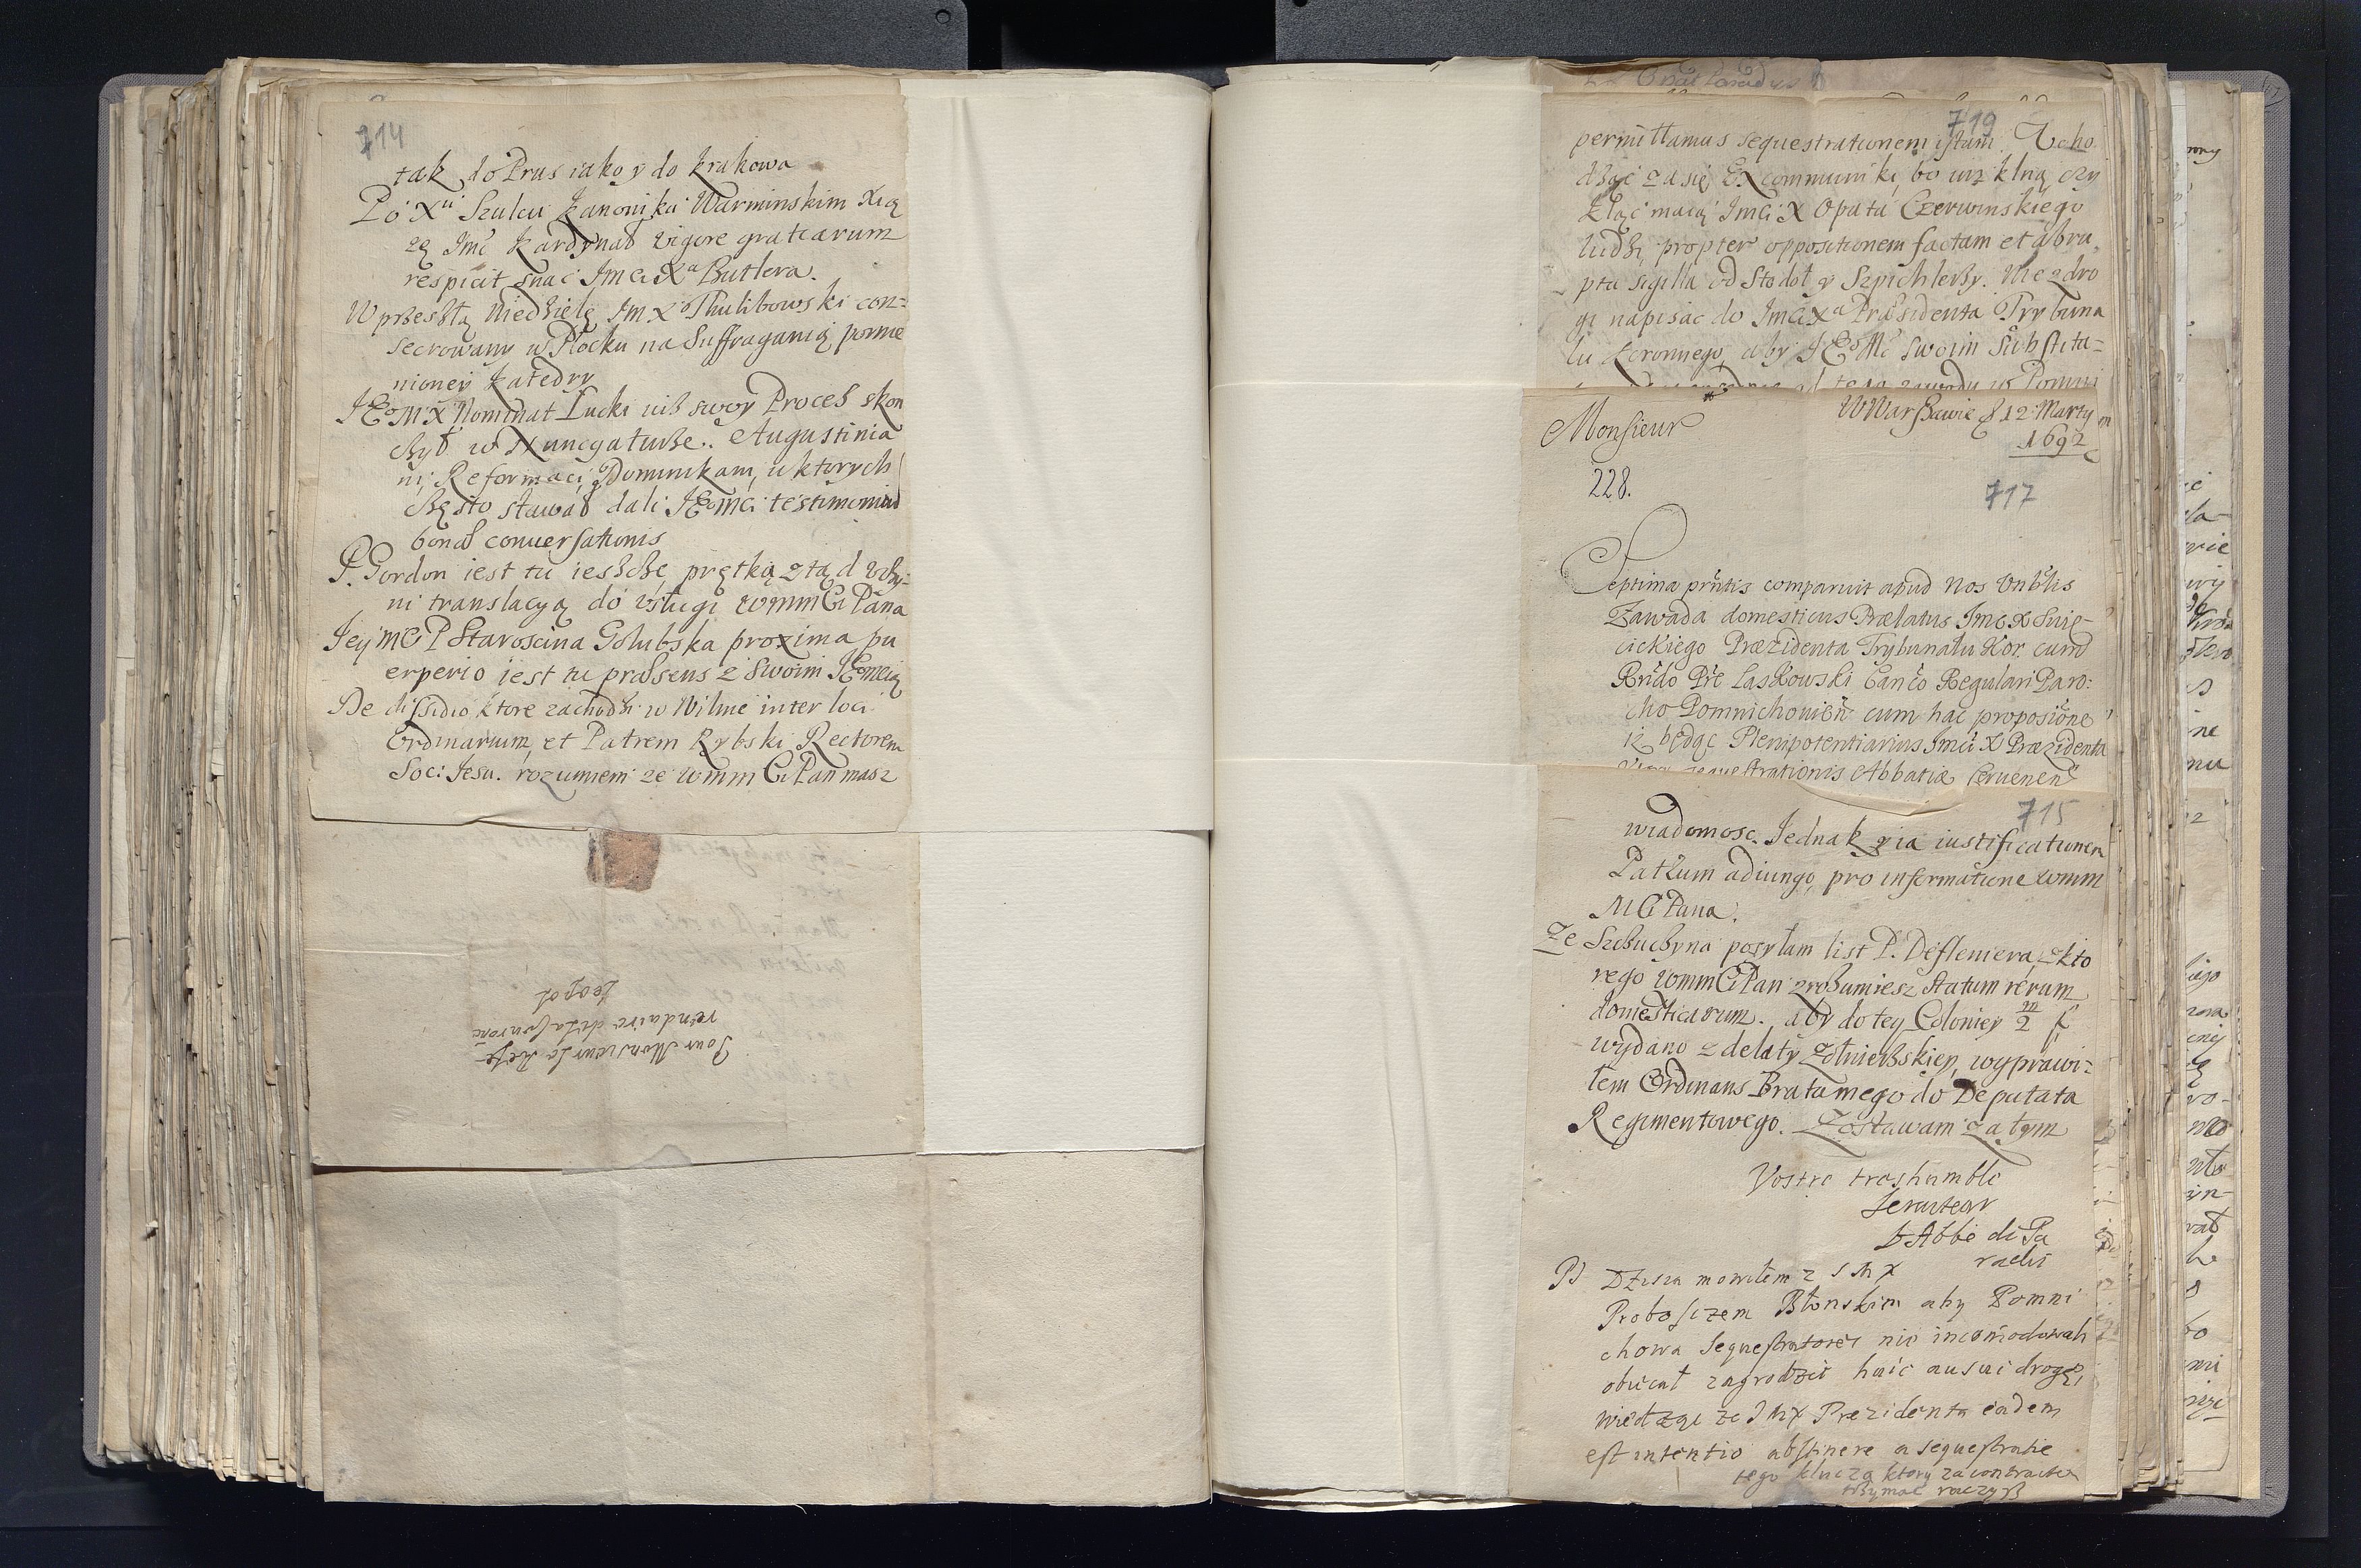 714
tak do Prus iako y do Krakowa
Po Xu Szulcu Kanoniku Warminskim Xią
zę Imć Kardynał vigore gratiarum
respicit snać Imci Xa Butlera.
W przeszłą Niedzielę Im X Thulibowski con-
secrowany w Płocku na Suffraganią pomie
nioney Katedry
JEoM X Nominat Łucki iuß swoy Proceß skon
czył w Nuncyaturze. Augustinia
ni, Reformaci, Dominikani, u ktorych
często stawał dali JEomci testimonium
bonae conversationis
P. Gordon iest tu ieszcze, prętką ztąd uczy-
ni translacyą do usług WMMCi Pana
Jey MCi P Staroscina Golubska proxima pu
erperio iest tu praesens z swoim JEomcią
De dissidio ktore zachodzi w Wilnie inter loci
Ordinarium, et Patrem Rybski Rectorem
Soc: Jesu. rozumiem ze WMM Ci Pan masz
Pour Monsieur le Refe-
rendaire de la Couronne
Leopol
719
permittamus sequestrationem istam. Ucho
dząc zasię Excommuniki, bo iuz klną czy
kląć maią Imci X Opata Czerwinskiego
ludzi propter oppositionem factam et abru-
pta sigilla od Stodoł y Szpichlerzy. Nie zdro
gi napisac do Imci Xa Praesidenta Trybuna
lu Koronnego, aby JEoMć swoim Substitu-
Monsieur
W Warszawie d 12 Marty
1692
228.
717
Septima praesentis comparuit apud Nos Vnblis
Zawada domesticus Praelatus Imc X Swie-
cickiego Praezidenta Trybunału Kor. cum
Rndo Pre Laskowski Canco Regulari Paro:
cho Pomnichovien cum hac proposione
iż będąc Plenipotentiarius Imci X Praezidenta
sequestrationis Abbatiae Cervenen
715
wiadomosc. Jednak y ia iustificationem
Patrum adiungo, pro informatione WMM
MCi Pana.
Ze Szczuczyna posyłam list P. Desleniera, z kto
rego WMMCi Pan zrozumiesz statum rerum
domesticarum. aby do tey Coloniey m/2 f
wydano z delaty zołnierzskiey, wyprawi-
łem Ordinans Brata mego do Deputata
Regimentowego. Zostawam zatym
Vostre treshumble
Seruitear
L'Abbé di Pa
radis
PS Dzisia mowiłem z J M X
Proboszczem Błonskim aby Pomni
chowa Sequestratores nie incomodowali
obiecał zagrodzić huic ausui drogę,
wiedząc ze J M X Prezidenta eadem
est intentio abstinere a sequestratie
tego klucza ktory za contractem
trzymac raczysz